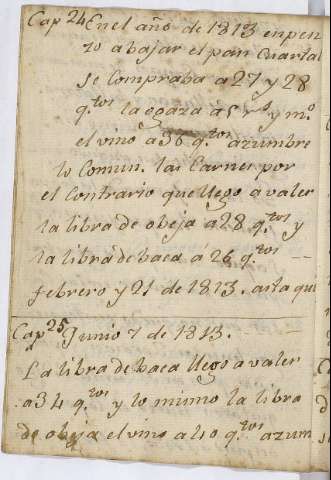 Cap 24 En el año de 1813 enpen
zo abajar el pan Cuartal
se Compraba a 27 y 28
q.tos la ogaza á 5 r.s y m.o
el vino a 36 q.tos azumbre
lo Comun. las Carnes por
el Contrario que llego a valer
la libra de obeja a 28 q.tos y
la libra de baca á 26 q.tos
febrero y 21 de 1813. asta qui
Cap 25 Junio 7 de 1813.
La libra de baca llego a valer
a 34 q.tos y lo mismo la libra
de obeja el vino a 40 q.tos azum